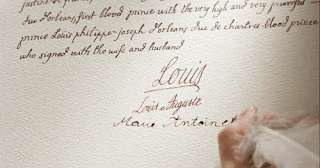 du Horleans, first blood prince with the very high and very powerful
prince Louis philippe-joseph Horleans duc de chartres blood prince
who signed with the wife and husband
Louis
Louis Auguste
Marie Antoine